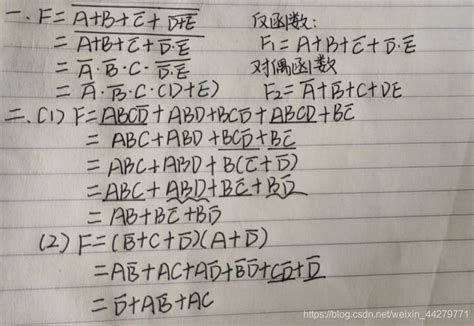 一、F = \overline{A+B+\overline{C}+\overline{D+E}} 反函数:
= \overline{A+B+\overline{C}+\overline{D}·\overline{E}} F₁ = A+B+\overline{C}+\overline{D}·\overline{E}
= \overline{A}·\overline{B}·C·\overline{\overline{D}·\overline{E}} 对偶函数
= \overline{A}·\overline{B}·C·(D+E) F₂ = \overline{A}+\overline{B}+C+DE
二、(1) F = ABC\overline{D}+ABD+BC\overline{D}+ABCD+B\overline{C}
= ABC+ABD+BC\overline{D}+B\overline{C}
= ABC+ABD+B(\overline{C}+\overline{D})
= ABC+ABD+B\overline{C}+B\overline{D}
= AB+B\overline{C}+B\overline{D}
(2) F=(\overline{B}+C+\overline{D})(A+\overline{D})
= A\overline{B}+AC+A\overline{D}+\overline{B}\overline{D}+C\overline{D}+\overline{D}
= \overline{D}+A\overline{B}+AC
https://blog.csdn.net/weixin_44279771